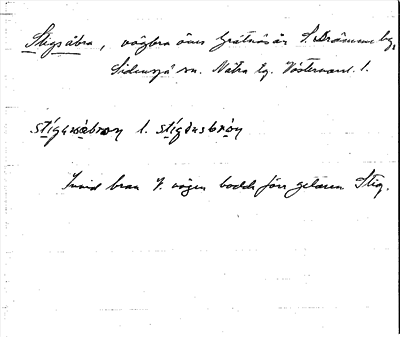 Stigsåbro, vägbro över Gråtnäsån S. Drömme by,
Sidensjö sn. Nätra tg. Västernorrl. l.
stígusabron l. stígåusbrón
Invid bron o. vägen bodde förr gelaren Stig.